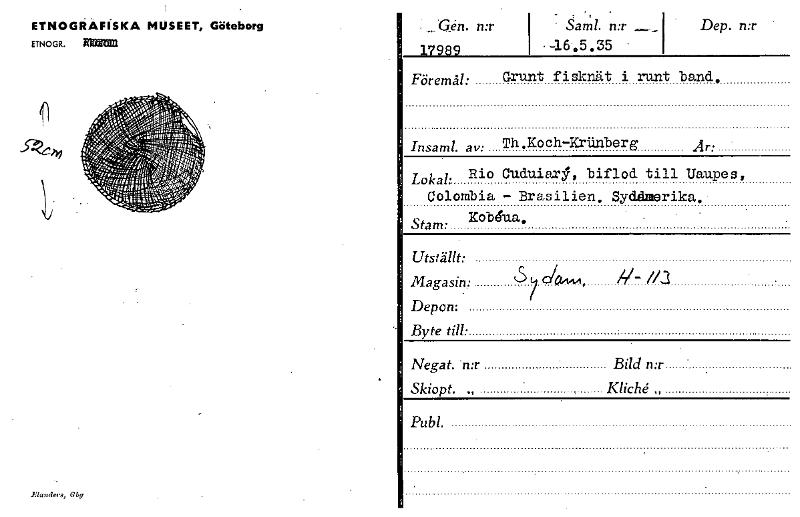 ETNOGRAFISKA MUSEET, Göteborg
ETNOGR.
52cm
Elanders, Gbg
Gen. n:r Saml. n:r Dep. n:r
17989 16.5.35
Föremål: Grunt fisknät i runt band.
Insaml. av: Th.Koch-Krünberg År:
Lokal: Rio Cuduiarý, biflod till Uaupes,
Colombia - Brasilien. Sydamerika.
Stam: Kobéua.
Utställt:
Magasin: Sydam. H-113
Depon:
Byte till:
Negat. n:r Bild n:r
Skiopt. „ Kliché „
Publ.